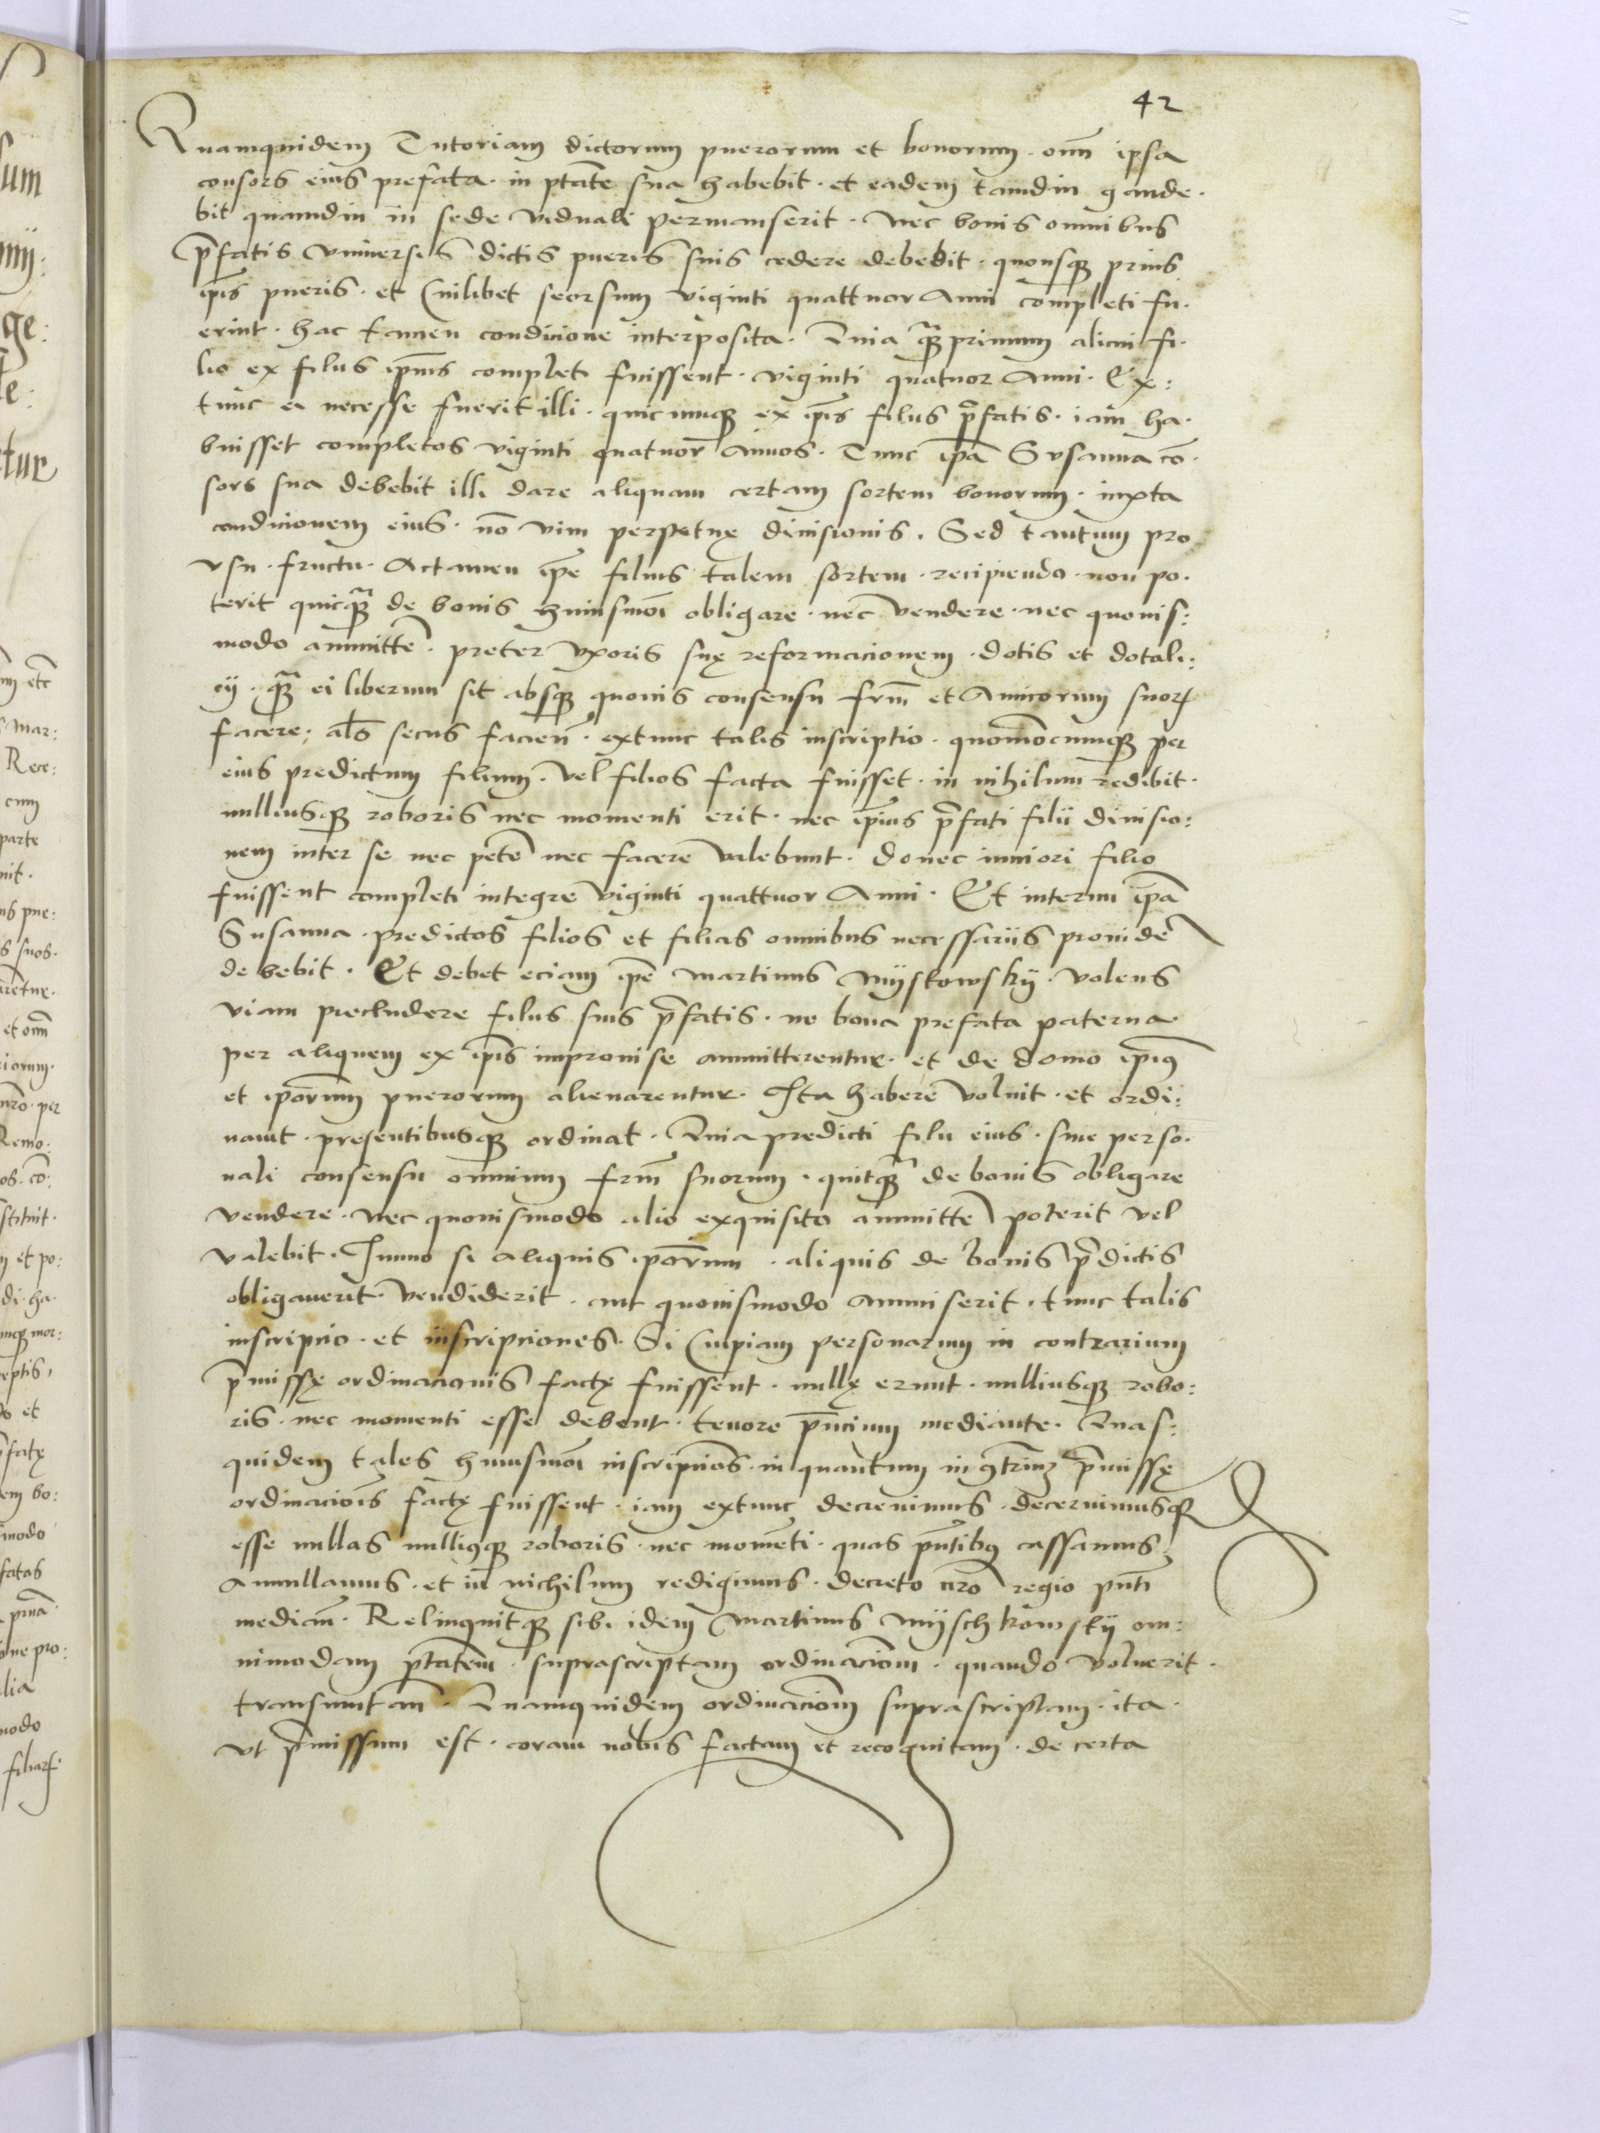 42
Quamquidem Tutoriam dictorum puerorum et bonorum · om̄ ipsa
consors eius prefata · in ptāte sua habebit · et eadem tamdiu gaude·
bit quamdiu in sede viduali permanserit · Nec bonis omnibus
p̄fatis vniversis dictis pueris suis cedere debebit · quousqꝫ prius
ip̄is pueris · et Cuilibet seorsum viginti quattuor Anni completi fu·
erint · hac tamen condicione interposita · Quia qꝫprimum alicui fi·
lio ex filiis ip̄ius completi fuissent · viginti quatuor Anni · Ex:
tunc ei necesse fuerit illi · quicumqꝫ ex ip̄is filiis p̄fatis · iam ha·
buisset completos viginti quatuor Annos · Tunc ip̄a Susanna cō·
sors sua debebit illi dare aliquam certam sortem bonorum · iuxta
condicionem eius · nō vim perpetuę divisionis · Sed tantum pro
vsu · fructu · Actamen ip̄e filius talem sortem · recipiendo · non po·
terit quicqꝫ de bonis huiusmōi obligare · nec vendere · nec quovis:
modo ammittē · preter vxoris suę reformacionem · dotis et dotali:
cij · qꝫ ei liberum sit absqꝫ quovis consensu frm̄ et Amicorum suorꝝ
facere · als̄ secus facien̄ · extunc talis inscriptio · quomōcumqꝫ per
eius predictum filium · vel filios facta fuisset · in nihilum redibit ·
nulliusqꝫ roboris nec momenti erit · nec ip̄ius p̄fati filii divisio:
nem inter se nec petē nec facere valebunt · donec iuniori filio
fuissent completi integre viginti quattuor Anni · Et interim ip̄a
Susanna · predictos filios et filias omnibus necessariis providē
debebit · Et debet eciam ip̄e Martinus Myskowskÿ · volens
viam precludere filiis suis p̄fatis · ne bona prefata paterna
per aliquem ex ip̄is improvise ammitterentur · et de domo ip̄iꝰ
et ip̄orum puerorum alienarentur · Ita habere voluit · et ordi:
navit · presentibusqꝫ ordinat · Quia predicti filii eius · sine perso·
nali consensu omnium frm̄ suorum · quitqꝫ de bonis obligare
vendere · nec quovismodo alio exquisito ammittē poterit vel
valebit · Immo si aliquis ip̄orum · aliquis de bonis p̄dictis
obligaverit · vendiderit · aut quovismodo ammiserit · tunc talis
inscripcio · et inscripciones · Si Cuipiam personarum in contrarium
p̄missę ordinacionis factę fuissent · nullę erunt · nulliusqꝫ robo:
ris · nec momenti esse debent · tenore p̄ncium mediante · Quas:
quidem tales huiusmōi inscripciōs · in quantum in ꝯtriūꝫ p̄missę
ordinaciōis factę fuissent · iam extunc decrevimus · decernimusqꝫ
esse nullas nulliꝰqꝫ roboris · nec momenti · quas p̄ntibꝰ cassamus
Annullamus · et in nichilum redigimus · decreto nr̄o regio pn̄ti
median̄ · Relinquitqꝫ sibi idem Martinus Myschkowskÿ om:
nimodam ptātem · suprascriptam ordinaciōm · quando voluerit ·
transmutan̄ · Quamquidem ordinaciōm suprascriptam · ita ·
vt p̄missum est · coram nobis factam et recognitam · de certa